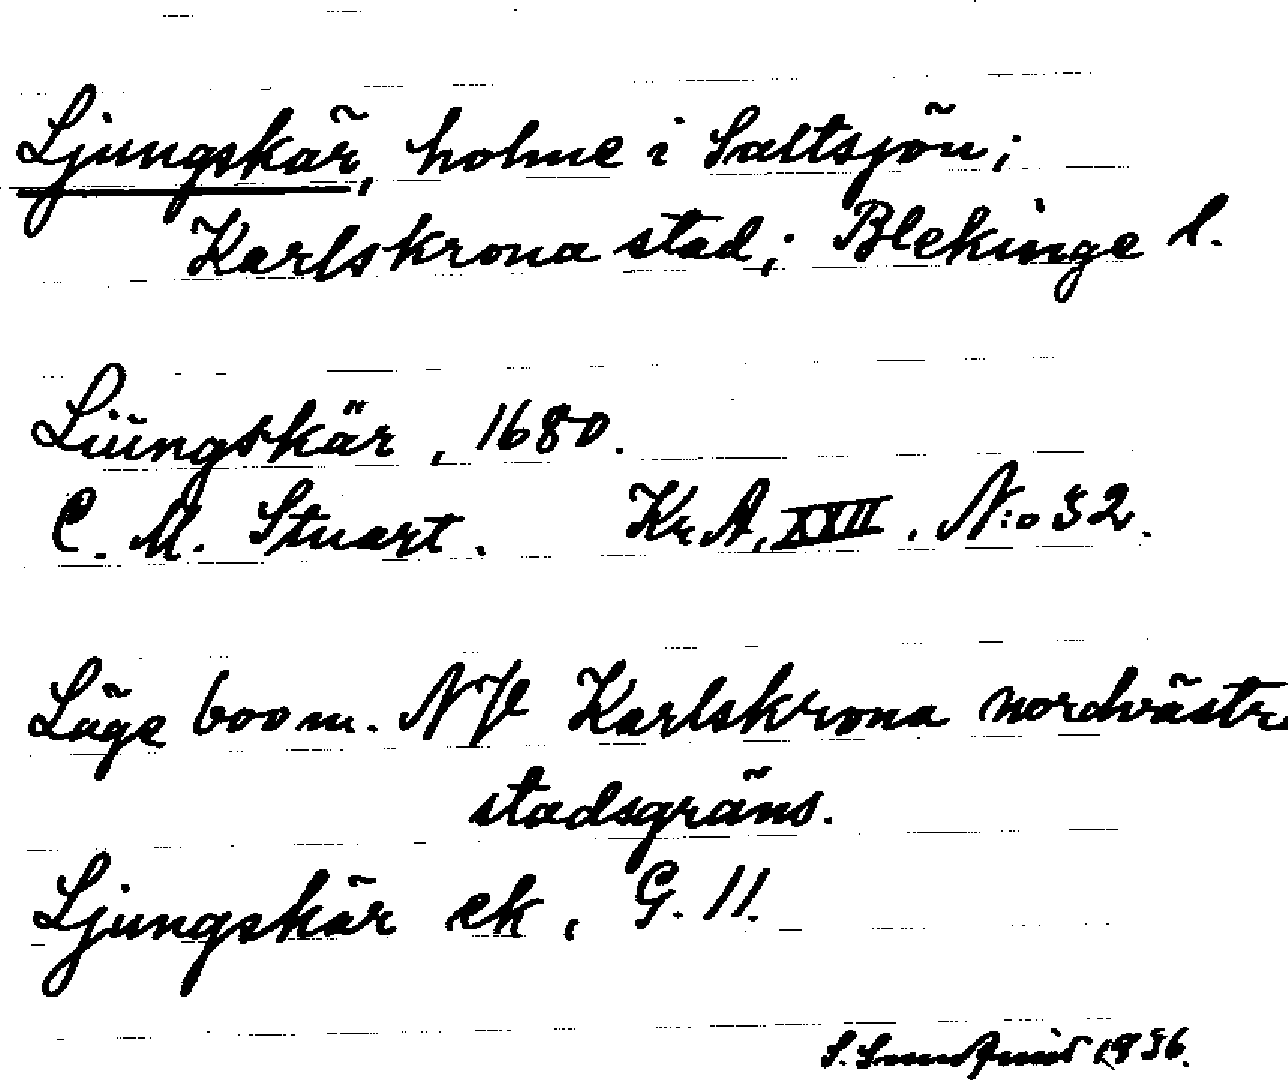 Ljungskär, holme i Saltsjön;
Karlskrona stad; Blekinge l.
Liungskär, 1680.
C. M. Stuart. Kr. A, XXII. N:o 32.
Läge 600 m. N fr Karlskrona nordvästr
stadsgräns.
Ljungskär ek, G. 11.
1936.